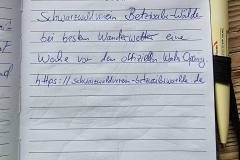 Schwarzwaldverein Betzweiler-Wälde
bei bestem Wanderwetter eine
Woche vor dem offiziellen Opening
https://schwarzwaldverein-betzweilerwaelde.de